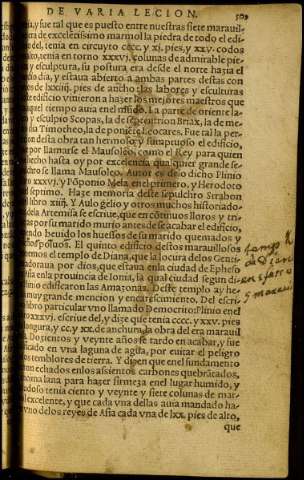 DE VARIA LECION. 509
, y fue tal que es puesto entre nuestras siete marauil
ra de excelẽtissimo marmol la piedra de todo el edi-
del, tenia en circuyto cccc. y xj. pies, y xxv. codos
, tenia en torno xxxvj. colunas de admirable pie-
y sculptura, su postura era desde el norte hazia el
dia, y estaua abierto a ambas partes destas con
de lxxiij. pies de ancho: las labores y esculturas
edificio vinieron a hazer los mejores maestros que
quel tiempo auia enel mũdo. La parte de oriente la-
, y sculpio Scopas, la de septentrion Briax, la de me-
dia Timocheo, la de poniẽte Leocares. Fue tal la per-
desta obra tan hermolo y sumptuoso el edificio,
por llamarse el Mausoleo, como el Rey para quien
hecho hasta oy por excelencia, qual quier grande se-
dicho se llama Mausoleo. Autor es de lo dicho Plinio
xxxvj. Y Põponio Mela enel primero, y Herodoto
septimo. Haze memoria deste sepulchro Strabon
libro xiiij. Y Aulo gelio y otros muchos historiado-
dela Artemisia se escriue, que en cõtinuos lloros y tri-
por su marido murio antes de se acabar el edificio,
endo beuido los huessos de su marido quemados y
hos poluos. El quinto edificio destas marauillosas
emos el templo de Diana, que la locura delos Genti-
adoraua por dios, que estaua enla ciudad de Epheso
enla prouincia de Ionia, la qual ciudad segun di-
linio edificaron las Amazonas. Deste templo ay he-
muy grande mencion y encarescimiento. Del escri-
libro particular vno llamado Democrito: Plinio enel
xxxvj. escriue del, y dize que tenia cccc. y xxv. pies
longura, y cc. y xx. de anchura, la obra del era marauil
Dozientos y veynte años se tardo en acabar, y fue
cado en vna laguna de agua, por euitar el peligro
temblores de tierra. Y dizen que enel fundamento
echados enlos assientos carbones quebrãtados,
ma lana para hazer firmeza enel lugar humido, y
dolo tenia ciento y veynte y siete colunas de mar-
excelente, y que cada vna dellas auia mandado ha-
vno delos reyes de Asia cada vna de lxx. pies de alto,
que